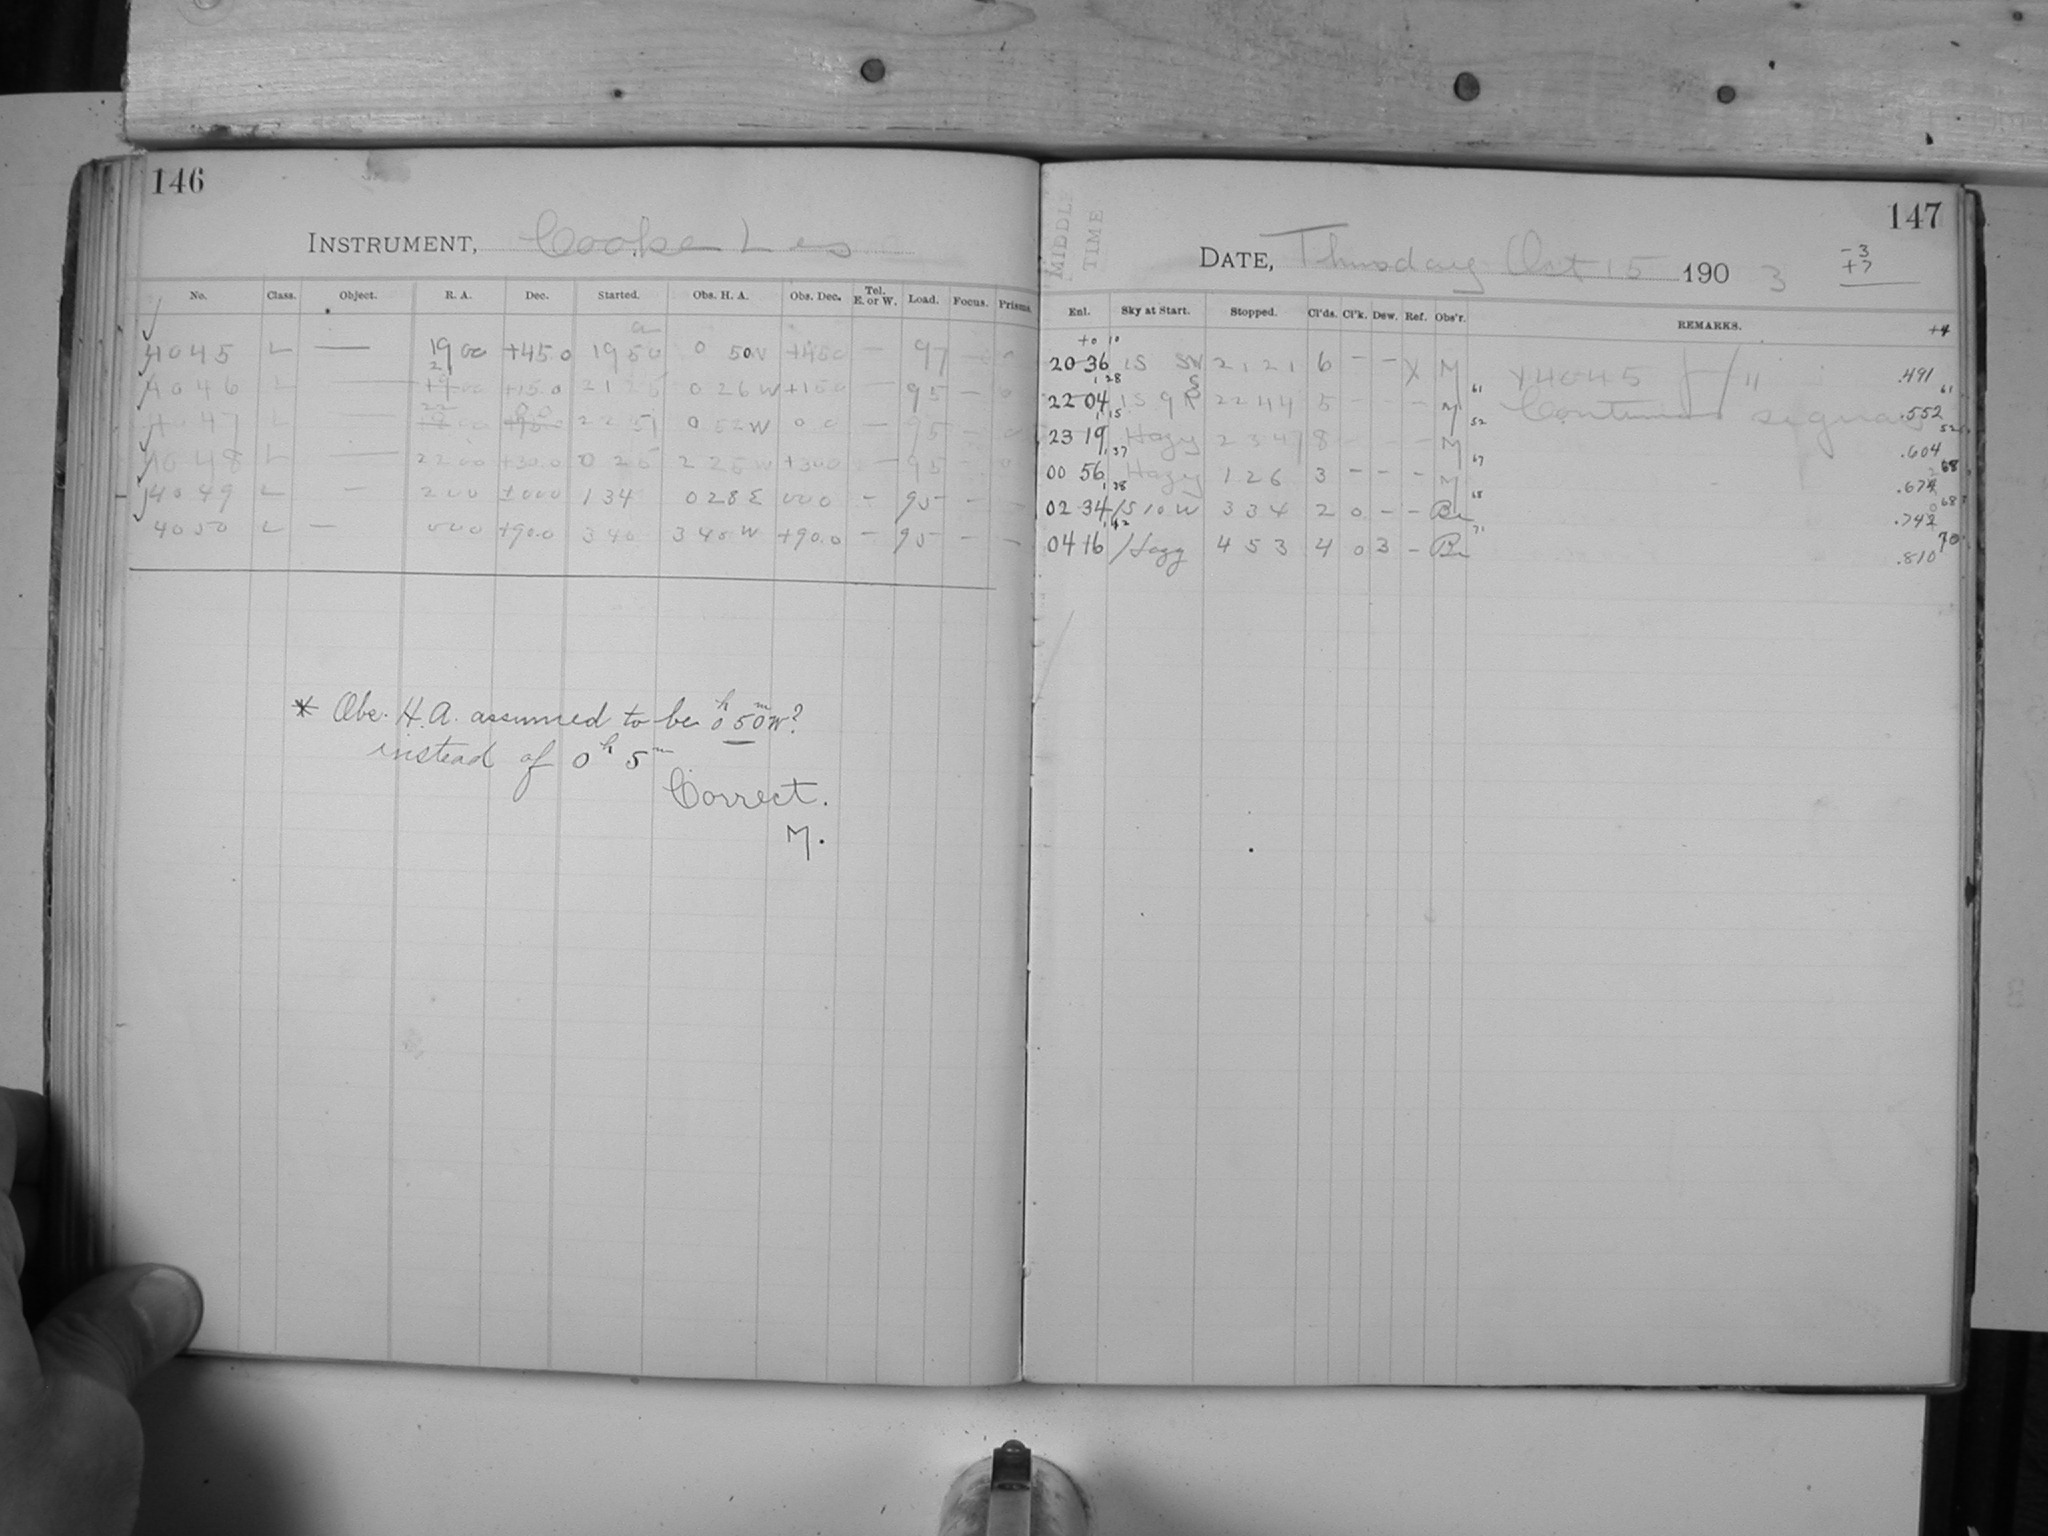 146
INSTRUMENT, Cooke Les
No. Class. Object. R. A. Dec. Started. Obs. H. A. Obs. Dec. Tel. E. or W. Load. Focus. Prisms.
4045 L — 19 00 +45.0 19 50 0 50W +450 — 97
4046 L — 21 19 00 +15.0 21 26 0 26W +150 — 95 — 0
4047 L 22 00 00 22 51 0 52W 00 — 95 — 0
4048 L — 22 00 +30.0 0 25 2 25W +300 — 95 — 0
4049 L — 2 00 +000 1 34 0 28E 000 — 95 — —
4050 L — 000 +90.0 3 40 3 40W +90.0 — 95 — —
* Obs. H.A. assumed to be 0h 50mW?
instead of 0h 5m
Correct.
M.
147
MIDDLE TIME
DATE, Thursday Oct 15 1903
-3
+7
Enl. Sky at Start. Stopped. Cl'ds. Cl'k. Dew. Ref. Obs'r. REMARKS.
+4
+0 10
20 36 1S SW 21 21 6 — — X M X4045 .491
1 28 61 61
22 04 1S 9 R S 22 44 5 — — — M Continued signal .552
1 15 52 52
23 19 Hazy 23 47 8 — — — M .604
1 37 67 68
00 56 Hazy 1 26 3 — — — M .674
1 38 68 68
02 34 1S 10 W 3 34 2 0 — — Bn .742
1 42 71 70
04 16 Hazy 4 53 4 0 3 — Bn .810